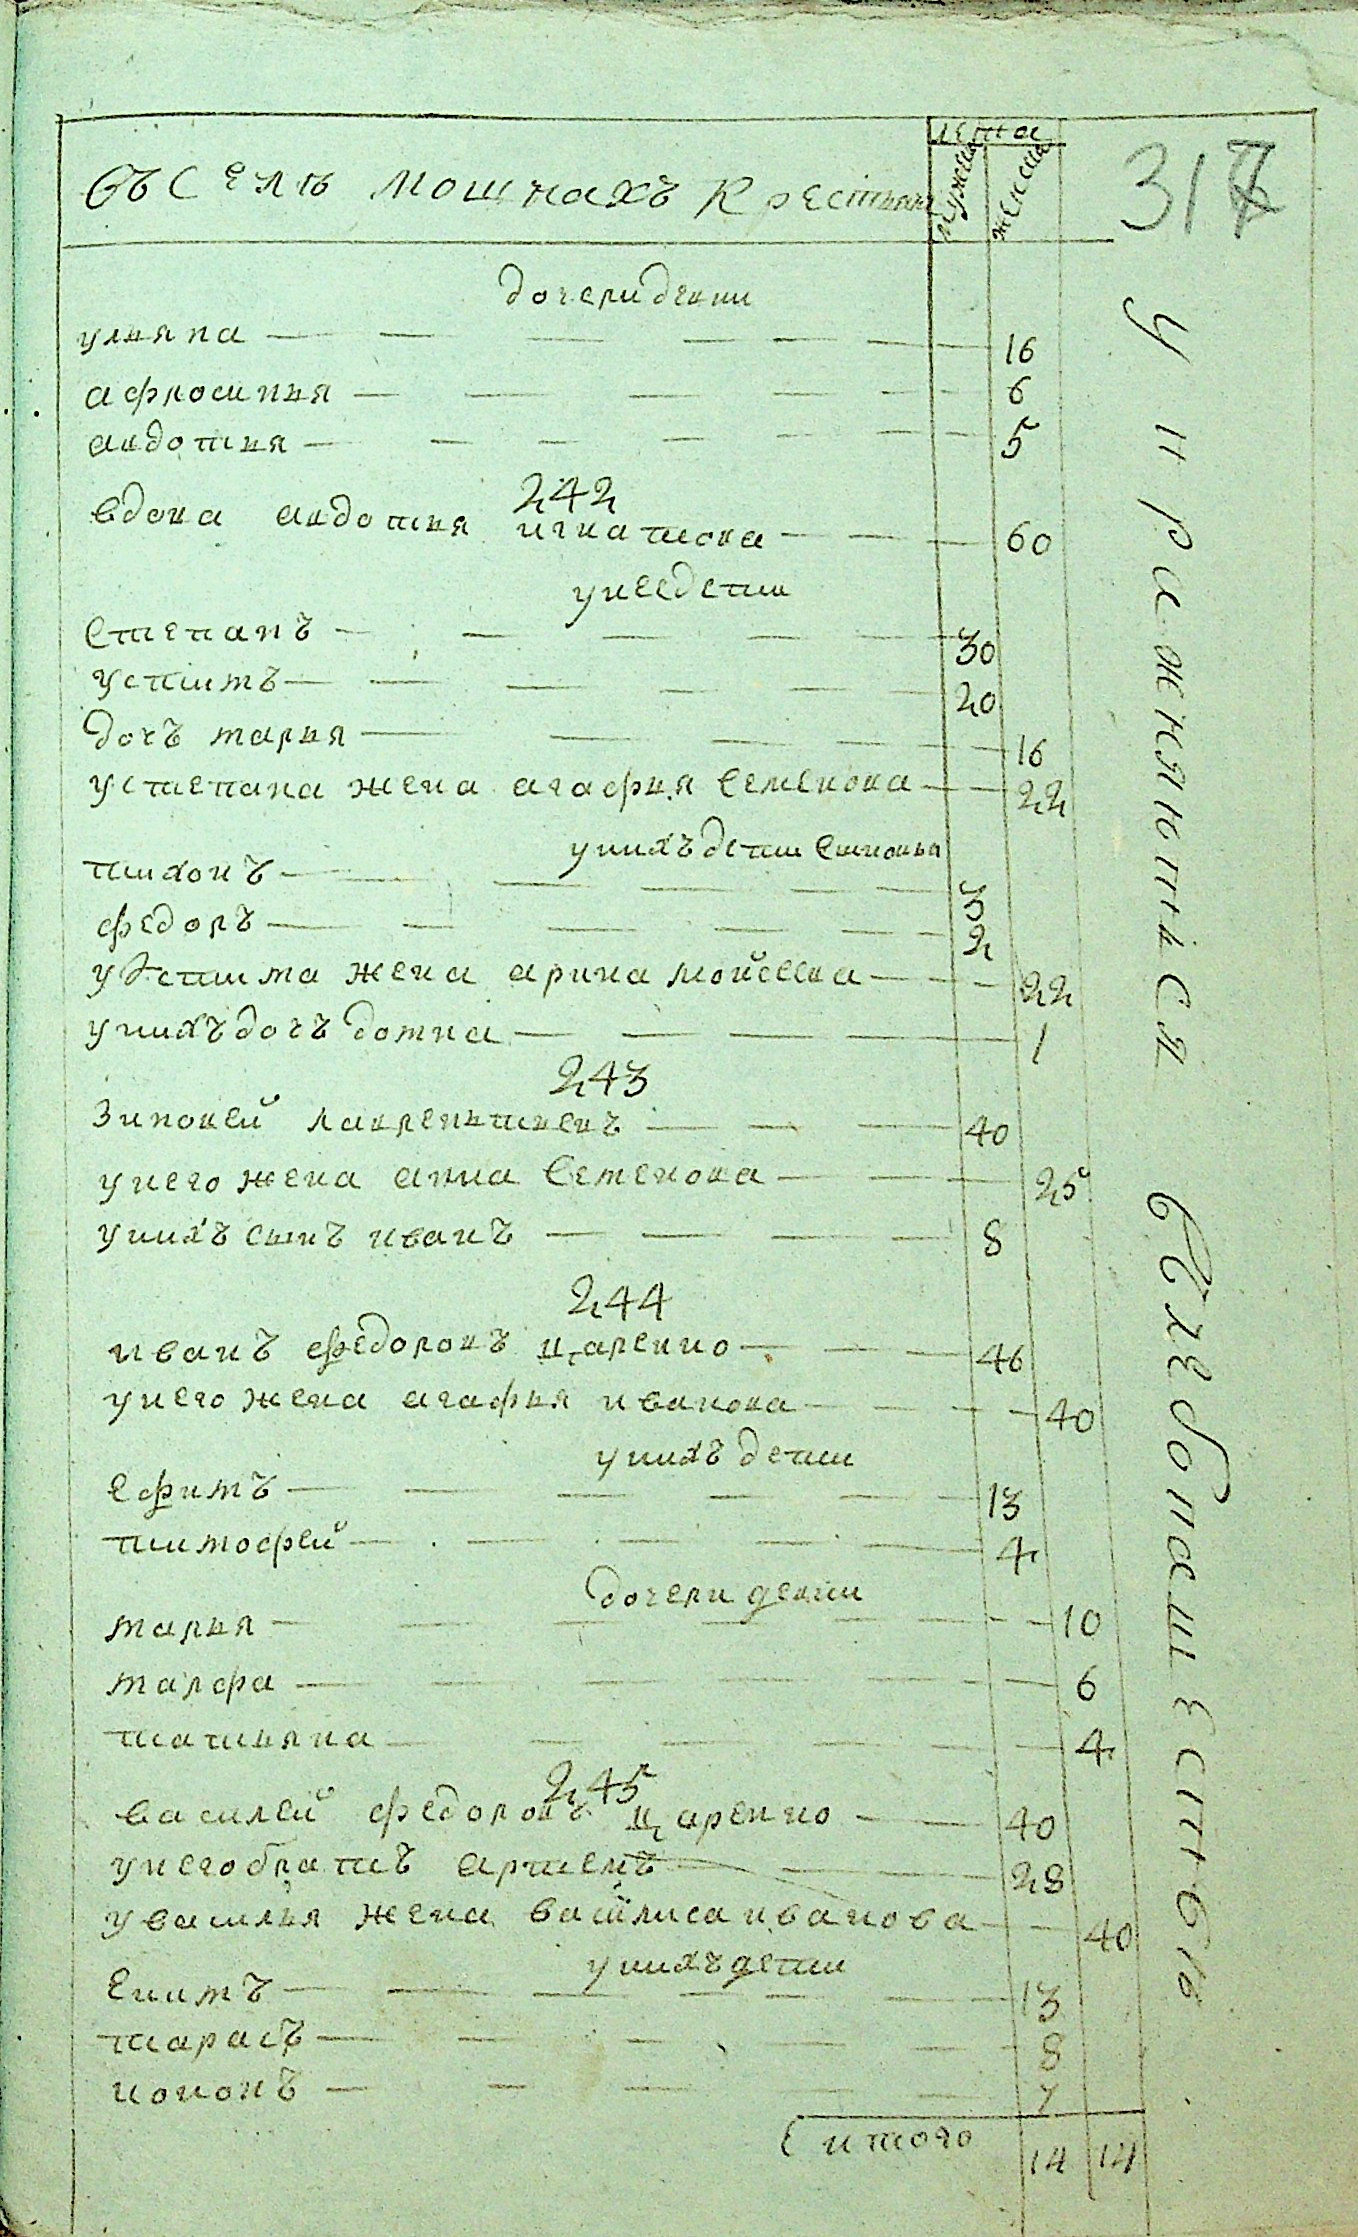 въ селѣ мошнахъ крестьянъ
лета
мужска
женска
317
дочери девки
ульяна 16
афросинья 6
авдотья 5
242
вдова авдотья игнатова 60
у нее дети
степанъ 30
устимъ 20
дочъ марья 16
у степана жена агафья семенова 22
у нихъ дети сыновья
тихонъ 3
федоръ 2
у устима жена арина мойсеева 22
у нихъ дочъ домна 1
243
зиновей лаврентьевъ 40
у него жена анна семенова 25
у нихъ сынъ иванъ 8
244
иванъ федоровъ царенко 46
у него жена агафья иванова 40
у нихъ дети
ефимъ 13
тимофей 4
дочери девки
марья 10
марфа 6
татьяна 4
245
василей федоровъ царенко 40
у него братъ артемъ 28
у василья жена василиса иванова 40
у нихъ дети
екимъ 13
тарасъ 8
кононъ 7
итого 14 14
упражняютъся
вхлебопашествѣ